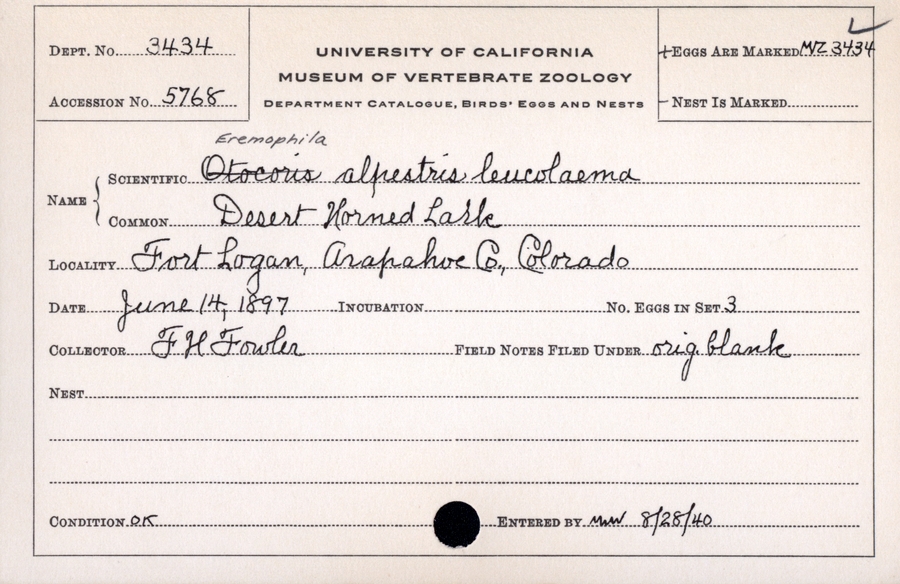 Dept. No. 3434
UNIVERSITY OF CALIFORNIA
MUSEUM OF VERTEBRATE ZOOLOGY
Department Catalogue, Birds' Eggs and Nests
Eggs Are Marked MVZ 3434
Accession No. 5768
Nest Is Marked
Eremophila
Name Scientific Otocoris alpestris leucolaema
Common Desert Horned Lark
Locality Fort Logan, Arapahoe Co., Colorado
Date June 14, 1897 Incubation No. Eggs in Set 3
Collector F H Fowler Field Notes Filed Under orig. blank
Nest
Condition OK Entered by 8/28/40